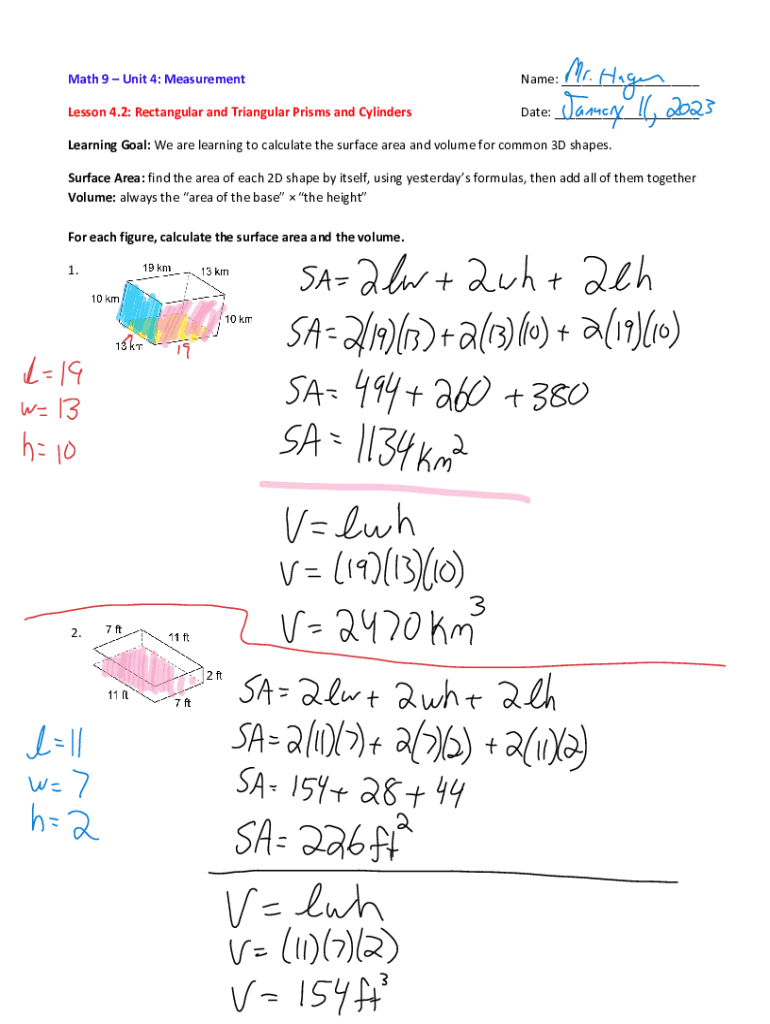 Math 9 – Unit 4: Measurement
Name: Mr. Hagen
Lesson 4.2: Rectangular and Triangular Prisms and Cylinders
Date: January 11, 2023
Learning Goal: We are learning to calculate the surface area and volume for common 3D shapes.
Surface Area: find the area of each 2D shape by itself, using yesterday's formulas, then add all of them together
Volume: always the "area of the base" × "the height"
For each figure, calculate the surface area and the volume.
1.
19 km
13 km
10 km
10 km
13 km
19
l=19
w=13
h=10
SA=2lw+2wh+2lh
SA=2(19)(13)+2(13)(10)+2(19)(10)
SA=494+260+380
SA=1134km²
V=lwh
V=(19)(13)(10)
V=2470km³
2.
7 ft
11 ft
2 ft
11 ft
7 ft
l=11
w=7
h=2
SA=2lw+2wh+2lh
SA=2(11)(7)+2(7)(2)+2(11)(2)
SA=154+28+44
SA=226ft²
V=lwh
V=(11)(7)(2)
V=154ft³